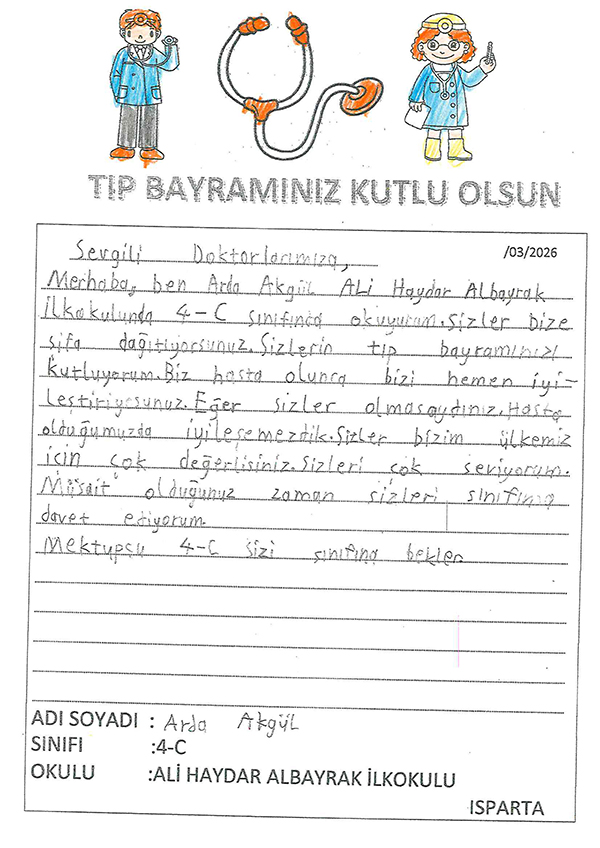 TIP BAYRAMINIZ KUTLU OLSUN
/03/2026
Sevgili Doktorlarımıza,
Merhaba, ben Arda Akgül ALi Haydar Albayrak
ilkokulunda 4-C sınıfında okuyorum.Sizler bize
şifa dağıtıyorsunuz.Sizlerin tıp bayramınızı
kutluyorum.Biz hasta olunca bizi hemen iyi-
leştiriyosunuz.Eğer sizler olmasaydınız.Hasta
olduğumuzda iyileşemezdik.Sizler bizim ülkemiz
için çok değerlisiniz.Sizleri çok seviyorum.
Müsait olduğunuz zaman sizleri sınıfıma
davet ediyorum.
Mektupçu 4-C sizi sınıfına bekler
ADI SOYADI : Arda Akgül
SINIFI :4-C
OKULU :ALİ HAYDAR ALBAYRAK İLKOKULU
ISPARTA